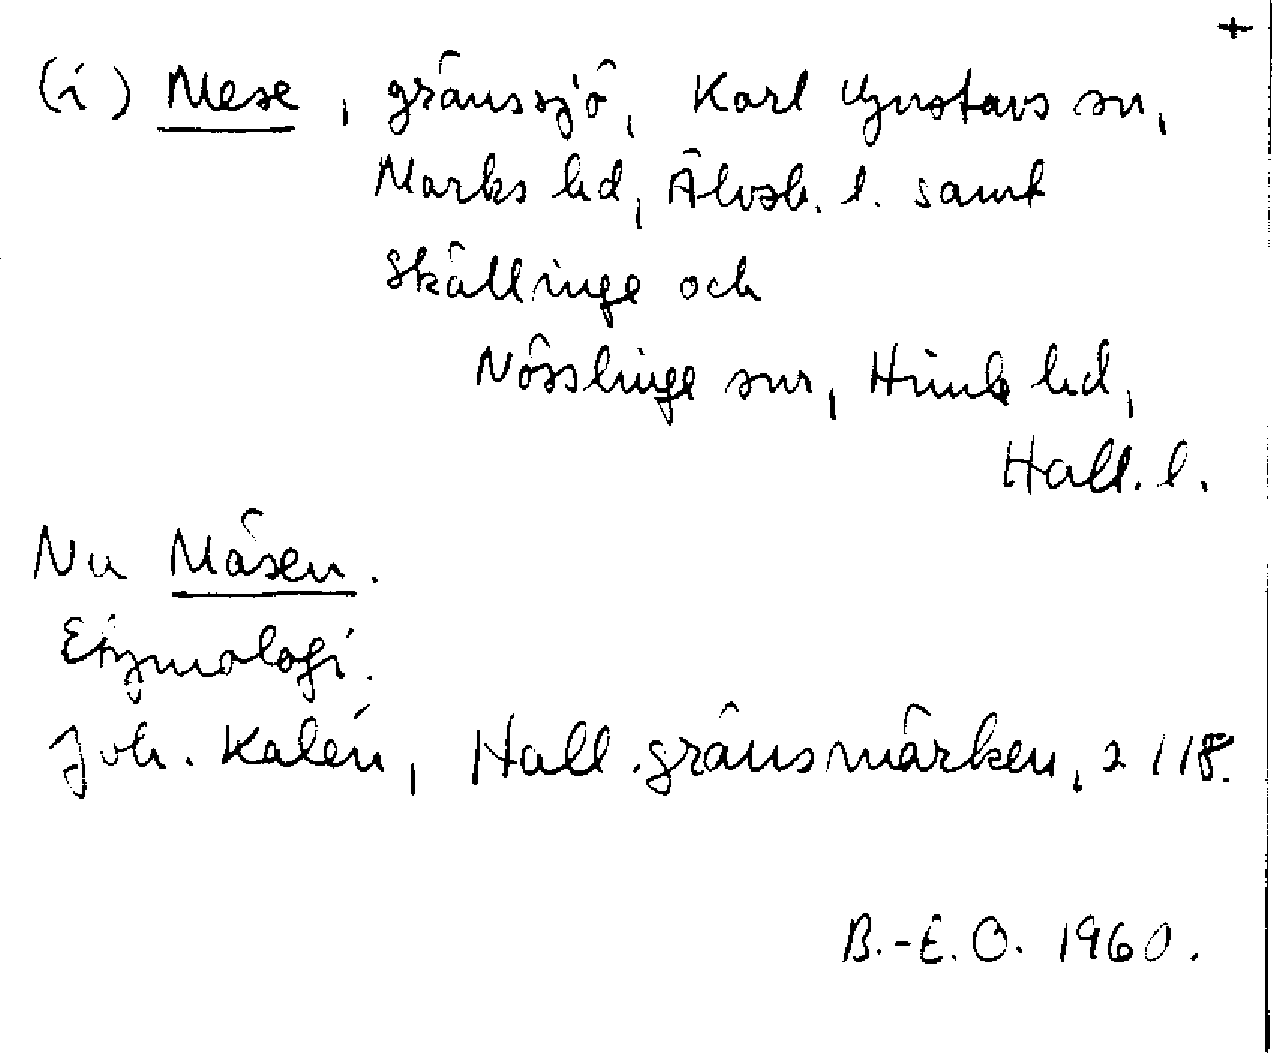 +
(i) Mese, gränssjö, Karl Gustavs sn,
Marks hd, Älvsb. l. samt
Skällinge och
Nösslinge snr, Himle hd,
Hall. l.
Nu Mäsen.
Etymologi.
Joh. Kalén, Hall. gränsmärken, s 118.
B.-E. O. 1960.